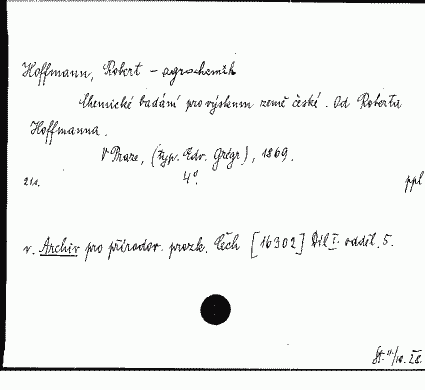 Hoffmann, Robert - agrochemik
Chemické badání pro výskum země české. Od Roberta
Hoffmanna.
V Praze, (typ. Edv. Grégr), 1869.
21s. 4°. ppl
v. Archiv pro přírodov. prozk. Čech [16302] Díl I. odděl. 5.